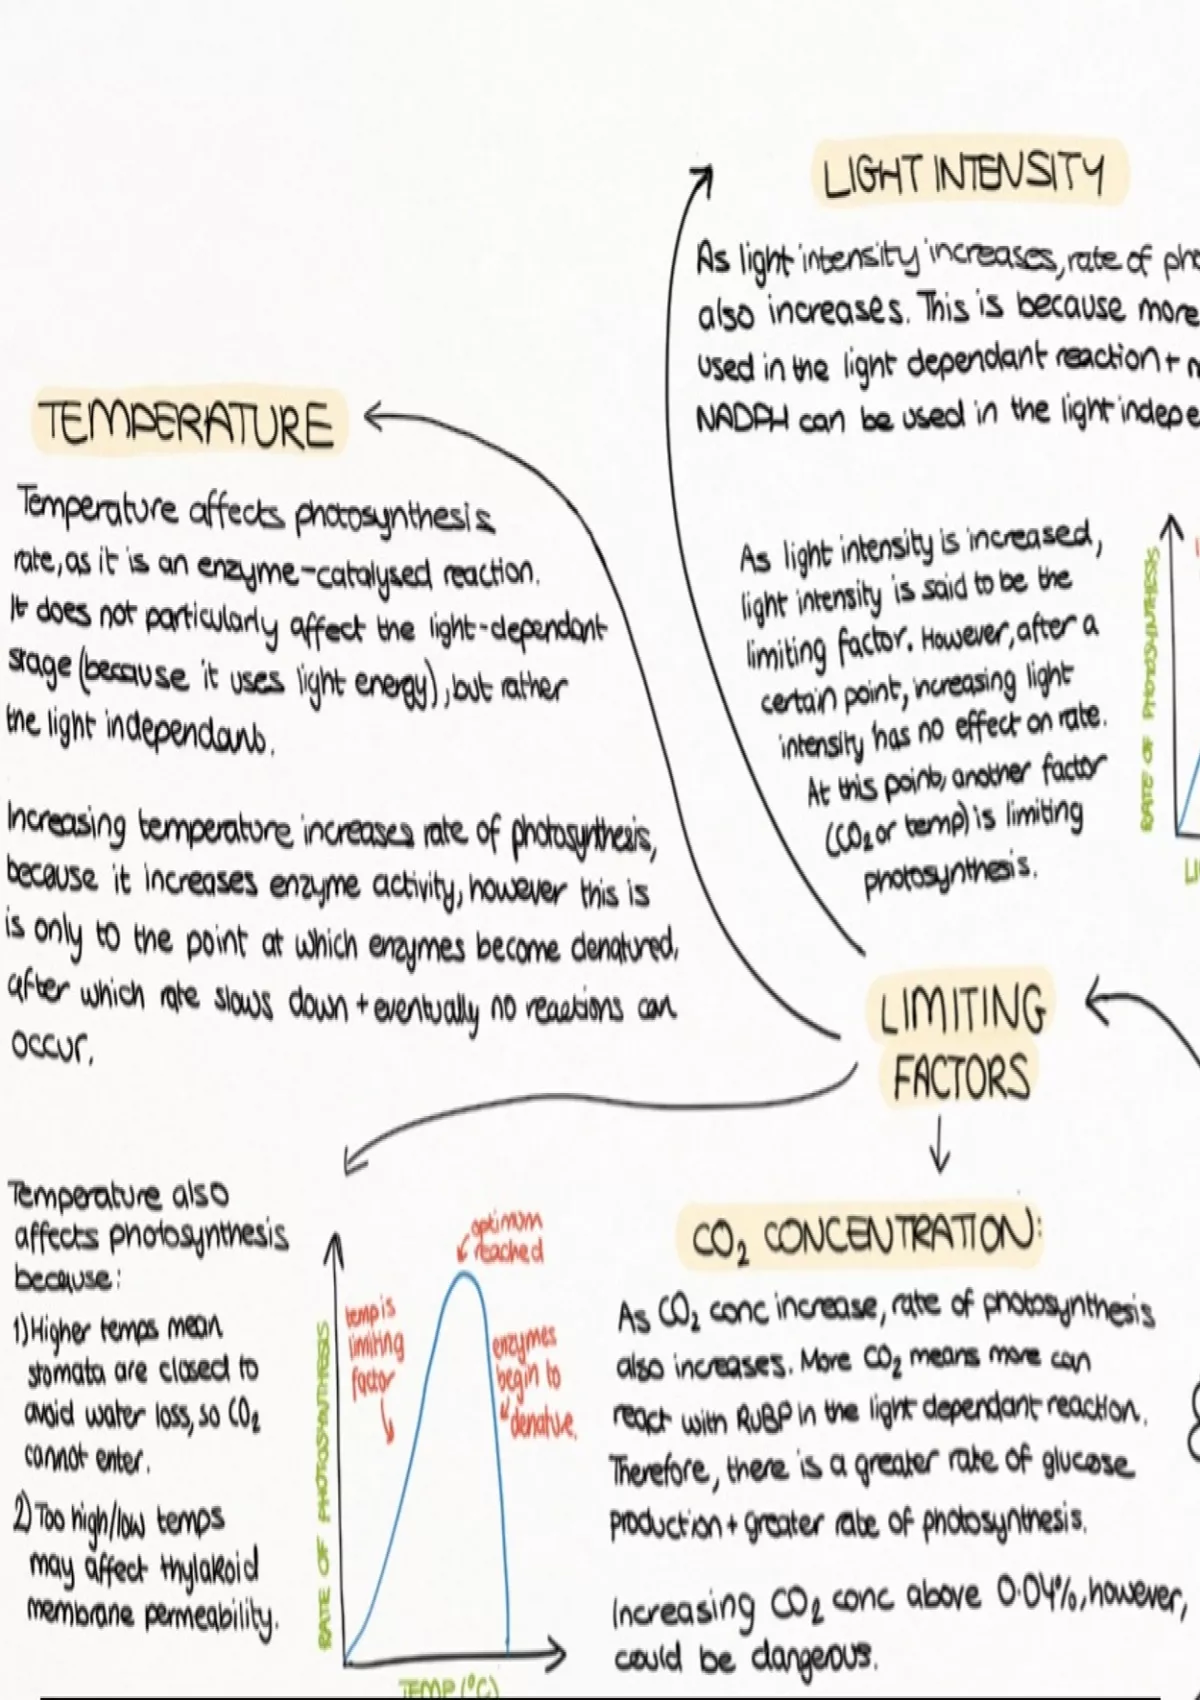 LIGHT INTENSITY
As light intensity increases, rate of pho
also increases. This is because more
used in the light dependant reaction +
NADPH can be used in the light indepe
As light intensity is increased,
light intensity is said to be the
limiting factor. However, after a
certain point, increasing light
intensity has no effect on rate.
At this point, another factor
(CO₂ or temp) is limiting
photosynthesis.
RATE OF PHOTOSYNTHESIS
TEMPERATURE
Temperature affects photosynthesis
rate, as it is an enzyme-catalysed reaction.
It does not particularly affect the light-dependant
stage (because it uses light energy), but rather
the light independant.
Increasing temperature increases rate of photosynthesis,
because it increases enzyme activity, however this is
is only to the point at which enzymes become denatured,
after which rate slows down + eventually no reactions can
occur.
LIMITING
FACTORS
Temperature also
affects photosynthesis
because:
1) Higher temps mean
stomata are closed to
avoid water loss, so CO₂
cannot enter.
2) Too high/low temps
may affect thylakoid
membrane permeability.
RATE OF PHOTOSYNTHESIS
temp is
limiting
factor
optimum
reached
enzymes
begin to
denature.
TEMP (°C)
CO₂ CONCENTRATION:
As CO₂ conc increase, rate of photosynthesis
also increases. More CO₂ means more can
react with RuBP in the light dependant reaction.
Therefore, there is a greater rate of glucose
production + greater rate of photosynthesis.
Increasing CO₂ conc above 0.04%, however,
could be dangeous.